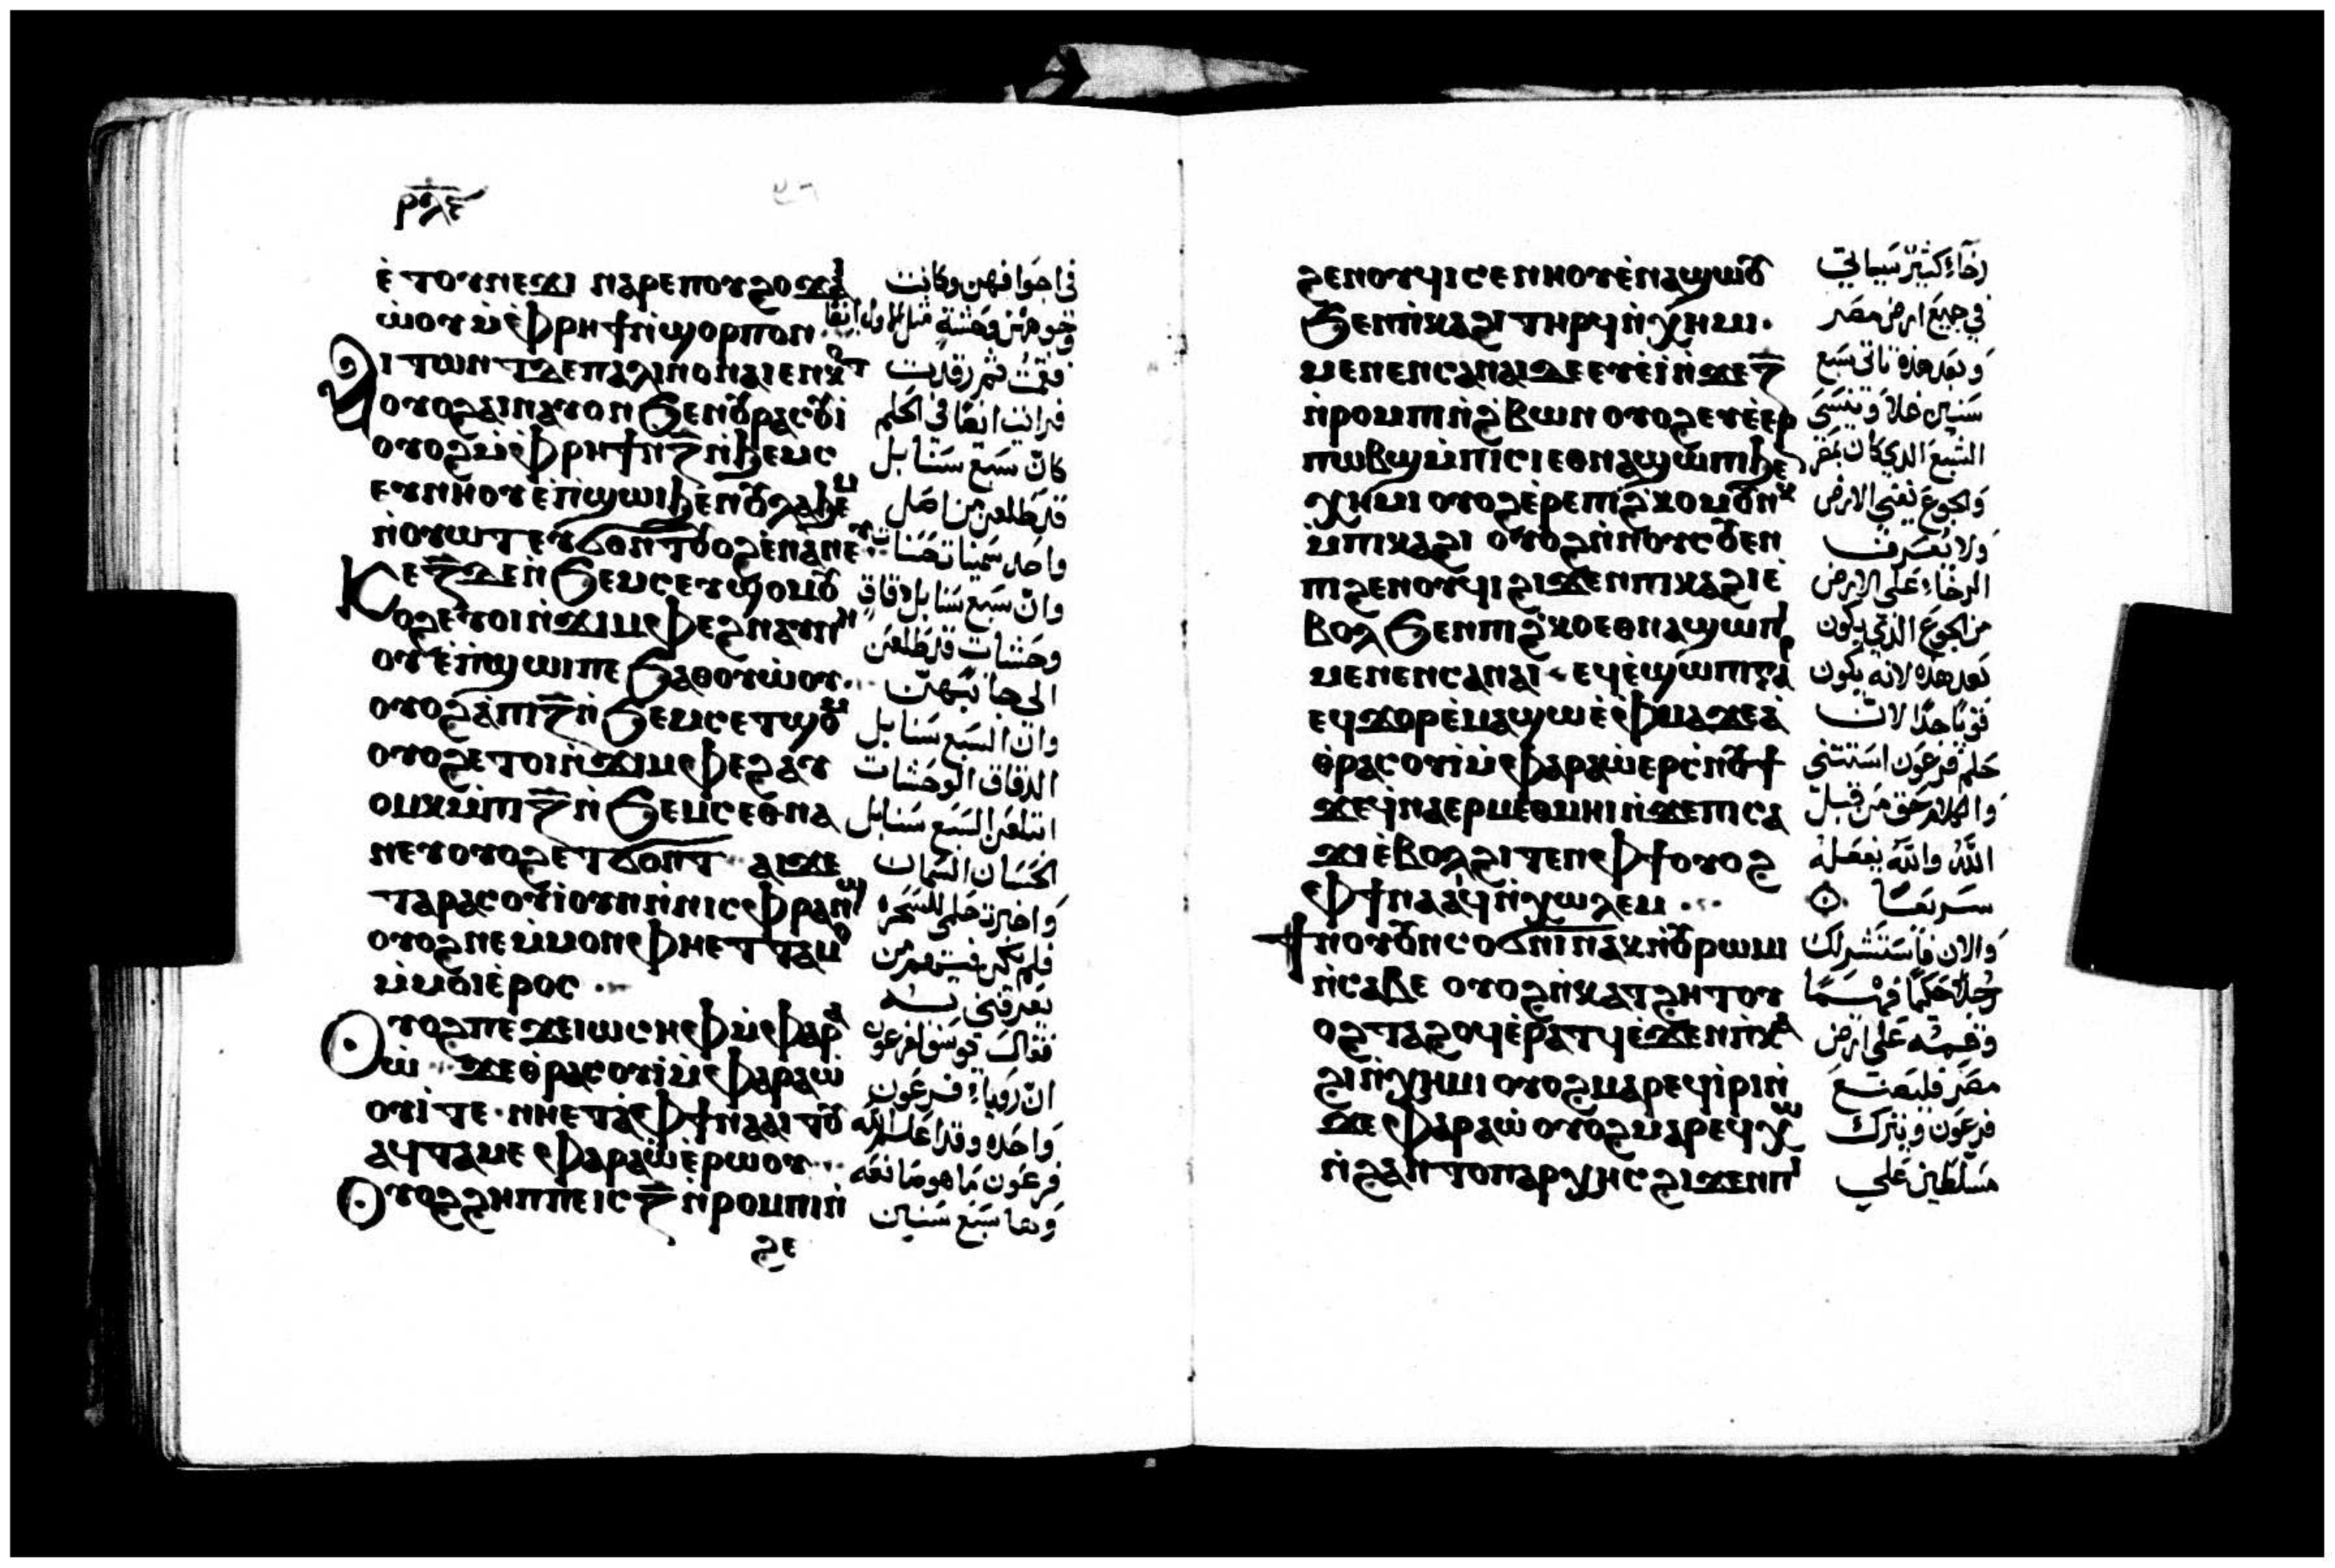 ⲣⲗⲉ
ⲉ̀ ⲧⲟⲩⲛⲉϫⲓ ⲛⲁⲣⲉⲡⲟⲩϩⲟ ϫⲓ
ⲱ̀ⲟⲩ ⲙ̀ⲫⲣⲏϯ ⲛ̀ϣⲟⲣⲡⲟⲛ
ⲟⲩⲟϩ ⲁⲓⲛⲁⲩ ⲟⲛ ϧⲉⲛ
ⲟⲩⲟϩ ⲙ̀ⲫⲣⲏϯ ⲛ̅ⲍ̅ ⲛ̀ϧⲉⲙⲥ
ⲉⲩⲛⲏⲟⲩ ⲉ̀ⲡ̀ϣⲱⲓ
ⲕⲉ ⲍ̅ ⲇⲉ ⲛ̀ϧⲉⲙⲥ ⲉⲩϣⲟⲙ
ⲟⲩ ⲉ̀ⲡ̀ϣⲱⲓ ⲡⲉ ϧⲁⲑⲟⲩⲱ̀ⲟⲩ
ⲟⲩⲟϩ ⲁ̀ ⲡⲓ ⲍ̅ ⲛ̀ϧⲉⲙⲥ ⲉⲧϣⲟ
ⲟⲩⲟϩ ⲉⲧⲟⲓ ⲛ̀ϫⲓⲙⲫⲉϩ ⲁⲩ
ⲟⲙⲕ ⲙ̀ⲡⲓ ⲍ̅ ⲛ̀ϧⲉⲙⲥ ⲉⲑⲛⲁ
ⲛⲉⲩ ⲟⲩⲟϩ ⲉⲧϭⲟⲛⲧ ⲁⲓϫⲉ
ⲧⲁⲣⲁⲥⲟⲩⲓ̀ ⲟⲩⲛ ⲛ̀ⲛⲓⲥⲫⲣⲁⲛϣ
ⲟⲩⲟϩ ⲛⲉ ⲙ̀ⲙⲟⲛ ⲫⲏ ⲉⲧⲧⲁⲙⲟ
ⲙ̀ⲙⲟⲓ ⲉ̀ⲣⲟⲥ
ⲟⲩⲟϩ ⲡⲉϫⲉ ⲓⲱⲥⲏⲫ ⲙ̀ⲫⲁⲣⲁ
ⲱ̀ ϫⲉ ⲑ̀ⲣⲁⲥⲟⲩⲓ̀ ⲙ̀ⲫⲁⲣⲁⲱ̀
ⲟⲩⲓ̀ ⲧⲉ ⲛⲏ ⲉⲧⲁ̀ ⲫϯ ⲛⲁⲁⲓⲧⲟⲩ
ⲁϥⲧⲁⲙⲉ ⲫⲁⲣⲁⲱ̀ ⲉ̀ⲣⲱⲟⲩ
ⲟⲩⲟϩ ϩⲏⲡⲡⲉ ⲓⲥ ⲍ̅ ⲛ̀ⲣⲟⲙⲡⲓ ⲛ̀
ϩⲉ
في اجوافهن وكانت
فقمت ثم رقدت
فرايت ايضًا في الحلم
كان سبع سنابل
قد طلعن من اصل
وان سبع سنابل دقاق
وان السبع سنابل
الدقاق الوحشات
ابتلعن السبع سنابل
الحسان السمان
واخبرت حلمي للسحرة
فلم يكن فيهم من
يعرفني به
فقال يوسف لفرعون
ان رؤياء فرعون
فرعون ما هو صانعه
وها سبع سنين
ϩⲉⲛⲟⲩϥⲓ ⲥⲉⲛⲏⲟⲩ ⲉ̀ⲛⲁϣⲱⲟⲩ
ϧⲉⲛ ⲡ̀ⲕⲁϩⲓ ⲧⲏⲣϥ ⲛ̀ⲭⲏⲙⲓ
ⲙⲉⲛⲉⲛⲥⲁ ⲛⲁⲓ ⲇⲉ ⲉⲩⲉ̀ⲓ̀ ⲛ̀ϫⲉ ⲍ̅
ⲛ̀ⲣⲟⲙⲡⲓ ⲛ̀ϩ̀ⲃⲱⲛ ⲟⲩⲟϩ ⲉⲩⲉ̀ⲉⲣ
ⲡⲱⲃϣ ⲙ̀ⲡⲓⲥⲓ ⲉⲑⲛⲁϣⲱⲡⲓ ϧⲉ
ⲭⲏⲙⲓ ⲟⲩⲟϩ ⲉ̀ⲣⲉ ⲡⲓϩ̀ⲕⲟ ⲙⲟⲩⲛⲕ
ⲙ̀ⲡⲓⲕⲁϩⲓ ⲟⲩⲟϩ ⲛ̀ⲛⲟⲩⲥⲟⲩⲉⲛ
ⲡⲓϩⲉⲛⲟⲩϥⲓ ϩⲓϫⲉⲛ ⲡⲓⲕⲁϩⲓ ⲉ̀
ⲃⲟⲗ ϧⲉⲛ ⲡⲓϩ̀ⲕⲟ ⲉⲑⲛⲁϣⲱⲡⲓ
ⲙⲉⲛⲉⲛⲥⲁ ⲛⲁⲓ ⲉϥⲉ̀ϣⲱⲡⲓ ⲅⲁⲣ
ⲉϥϫⲟⲣ ⲉ̀ⲙⲁϣⲱ ⲉ̀ⲫⲙⲁ ϫⲉ ⲁ̀
ⲑ̀ⲣⲁⲥⲟⲩⲓ̀ ⲙ̀ⲫⲁⲣⲁⲱ̀ ⲉⲣⲥ̀ⲛⲟⲩϯ
ϫⲉ ϥ̀ⲛⲁⲉⲣⲙⲉⲑⲙⲏⲓ ⲛ̀ϫⲉ ⲡⲓⲥⲁ
ϫⲓ ⲉ̀ⲃⲟⲗ ϩⲓⲧⲉⲛ ⲫϯ ⲟⲩⲟϩ
ⲫϯ ⲛⲁⲁⲓϥ ⲛ̀ⲭⲱⲗⲉⲙ
ϯⲛⲟⲩ ⲟⲩⲛ ⲥⲟϭⲛⲓ ⲛⲁⲕ ⲛ̀ⲟⲩⲣⲱⲙⲓ
ⲛ̀ⲥⲁⲃⲉ ⲟⲩⲟϩ ⲛ̀ⲕⲁⲧϩⲏⲧ ⲟⲩ
ⲟϩ ⲧⲁϩⲟϥ ⲉ̀ⲣⲁⲧϥ ⲉ̀ϫⲉⲛ ⲡ̀ⲕⲁ
ϩⲓ ⲛ̀ⲭⲏⲙⲓ ⲟⲩⲟϩ ⲙⲁⲣⲉϥⲓ̀ⲣⲓ ⲛ̀
ϫⲉ ⲫⲁⲣⲁⲱ̀ ⲟⲩⲟϩ ⲙⲁⲣⲉϥⲭⲱ
ⲛ̀ϩⲁⲛⲧⲟⲡⲁⲣⲭⲏⲥ ϩⲓϫⲉⲛ ⲡⲓ
رخاء كثير سياتي
في جميع ارض مصر
وبعد هذه تاتي سبع
سنين غلاء وينسى
الشبع الذي كان بمصر
والجوع يفني الارض
ولا يعرف
الرخاء على الارض
من الجوع الذي يكون
بعد هذه لانه يكون
قويا جدا لان
حلم فرعون استثنى
والكلام حق من قبل
الله والله يفعله
سريعًا
والان فاستشر لك
رجلًا حكيمًا فهيمًا
وقيمه على ارض
مصر فليصنع
فرعون ويترك
مسلطين على